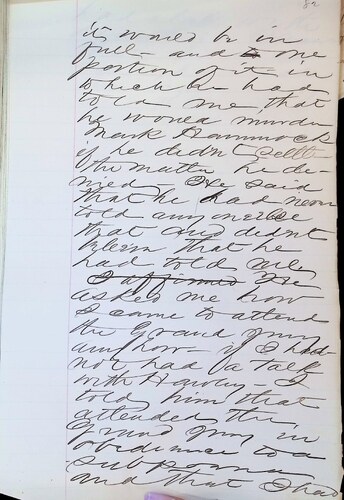 82
its would be in
full - and to one
portion of it - in
which he had
told me that
he would murder
Mark Hammock
if he didn't settle
the matter he de-
nied. He said
that he had never
told anyone else
that and didn't
that he
had told me
I affirmed He
asked me how
I came to attend
the Grand Jury
anyhow - if I had
not had a talk
with Hawley - I
told him that
attended the
Grand Jury in
obedience to a
subpoena
and that I had